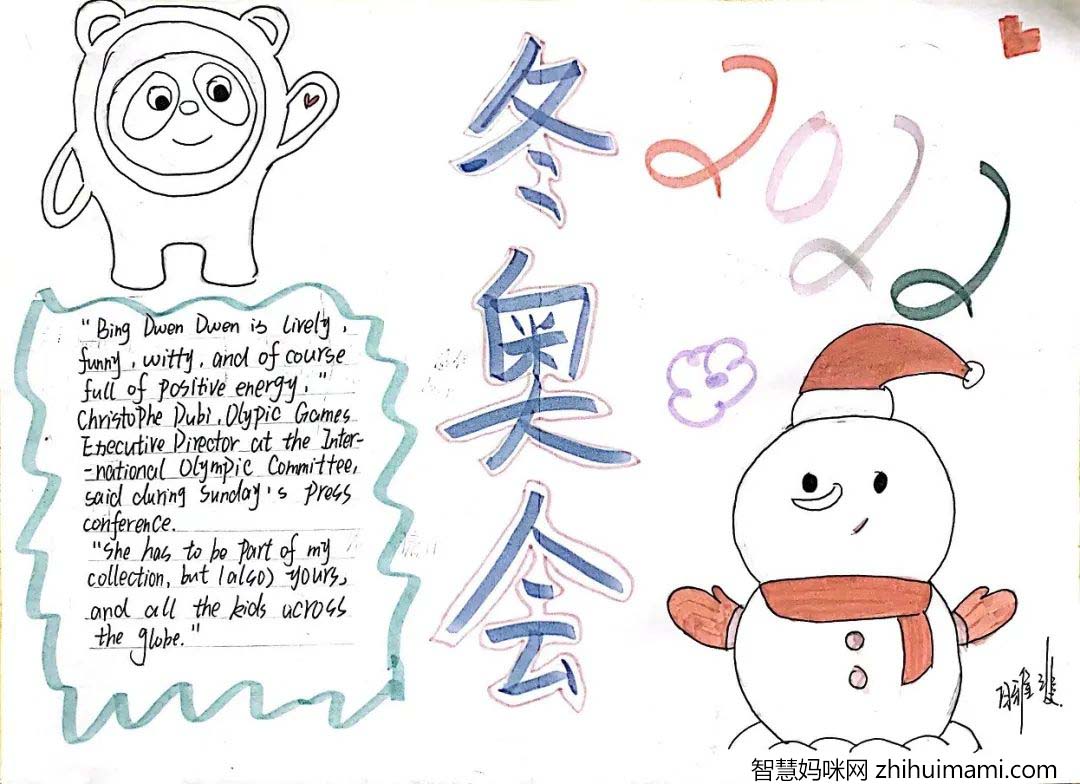 冬奥会
2022
"Bing Dwen Dwen is lively,
funny, witty, and of course
full of positive energy."
Christophe Dubi, Olypic Games
Executive Director at the Inter-
-national Olympic Committee,
said during Sunday's press
conference.
"She has to be part of my
collection, but (also) yours,
and all the kids across
the globe."
智慧妈咪网 zhihuimami.com